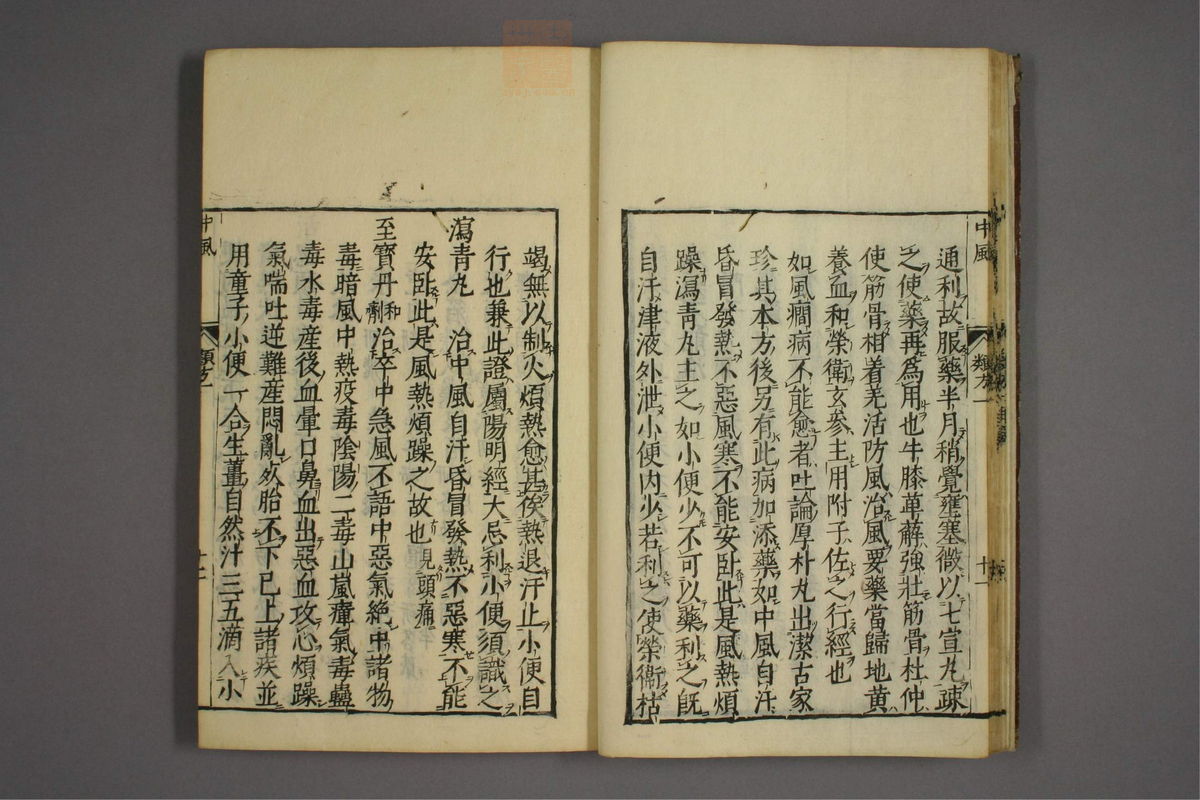 中風
類方一
十一
通利故服藥半月稍覺壅塞微以七宣丸疎
之使藥再為用也牛膝萆薢強壯筋骨杜仲
使筋骨相着羌活防風治風要藥當歸地黄
養血和榮衛玄參主用附子佐之行經也
如風癇病不能愈者吐論厚朴丸出潔古家
珍其本方後另有此病加添藥如中風自汗
昏冒發熱不惡風寒不能安卧此是風熱煩
躁瀉青丸主之如小便少不可以藥利之既
自汗津液外泄小便内少若利之使榮衛枯
竭無以制火煩熱愈甚俟熱退汗止小便自
行也兼此證屬陽明經大忌利小便須識之
瀉青丸　治中風自汗昏冒發熱不惡寒不能
安卧此是風熱煩躁之故也見頭痛
至寳丹和劑治卒中急風不語中惡氣絶中諸物
毒暗風中熱疫毒陰陽二毒山嵐瘴氣毒蠱
毒水毒産後血暈口鼻血出惡血攻心煩躁
氣喘吐逆難産悶亂死胎不下已上諸疾並
用童子小便一合生薑自然汁三五滴入小
中風
類方一
十二